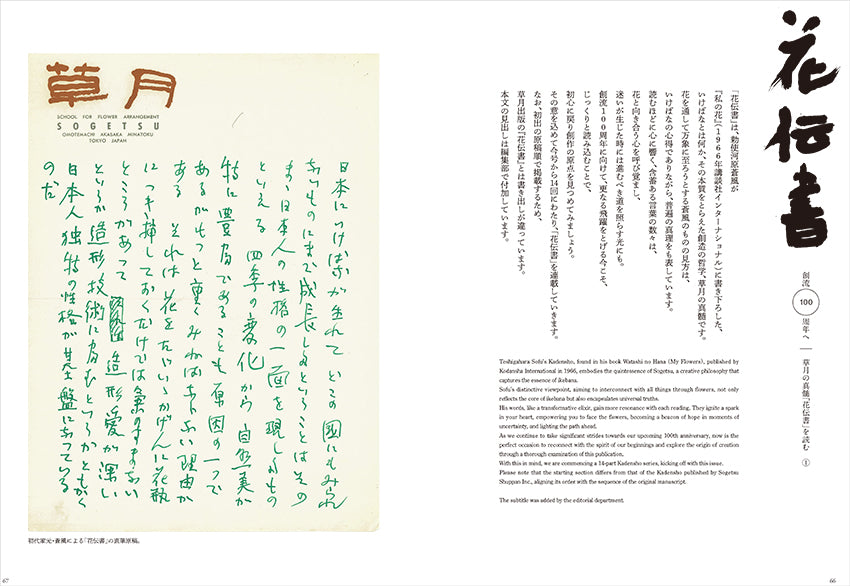 花伝書
創流100周年へ
草月の真髄『花伝書』を読む ①
「花伝書」は、勅使河原蒼風が
『私の花』(1966年講談社インターナショナル)に書き下ろした、
いけばなとは何か、その本質をとらえた創造の哲学、草月の真髄です。
花を通して万象に至ろうとする蒼風のものの見方は、
いけばなの心得でありながら、普遍の真理をも表しています。
読むほどに心に響く、含蓄ある言葉の数々は、
花と向き合う心を呼び覚まし、
迷いが生じた時には進むべき道を照らす光にも。
創流100周年に向けて、更なる飛躍をとげる今こそ、
じっくりと読み込むことで、
初心に戻り創作の原点を見つめてみましょう。
その意を込めて今号から14回にわたり、『花伝書』を連載していきます。
なお、初出の原稿順で掲載するため、
草月出版の『花伝書』とは書き出しが違っています。
本文の見出しは編集部で付加しています。
Teshigahara Sofu's Kadensho, found in his book Watashi no Hana (My Flowers), published by
Kodansha International in 1966, embodies the quintessence of Sogetsu, a creative philosophy that
captures the essence of ikebana.
Sofu's distinctive viewpoint, aiming to interconnect with all things through flowers, not only
reflects the core of ikebana but also encapsulates universal truths.
His words, like a transformative elixir, gain more resonance with each reading. They ignite a spark
in your heart, empowering you to face the flowers, becoming a beacon of hope in moments of
uncertainty, and lighting the path ahead.
As we continue to take significant strides towards our upcoming 100th anniversary, now is the
perfect occasion to reconnect with the spirit of our beginnings and explore the origin of creation
through a thorough examination of this publication.
With this in mind, we are commencing a 14-part Kadensho series, kicking off with this issue.
Please note that the starting section differs from that of the Kadensho published by Sogetsu
Shuppan Inc., aligning its order with the sequence of the original manuscript.
The subtitle was added by the editorial department.
66
草月
SCHOOL FOR FLOWER ARRANGEMENT
SOGETSU
OMOTEMACHI AKASAKA MINATOKU
TOKYO JAPAN
日本にいけばなが生れて いどこの国にもみられ
ないものにまで成長しるということはその
まゝ日本人の性格の一面を現しるもの
といえる 四季の変化から 自然美が
特に豊富であることも原因の一つで
あるがもっと重くみねばならない理由が
ある それは花をたゞいゝかげんに花瓶
につき挿しておくだけでは気のすまない
ところがあって 造形愛が深い
というか造形技術に富むというかともかく
日本人独特の性格が基盤になっている
のだ
初代家元・蒼風による「花伝書」の直筆原稿。
67